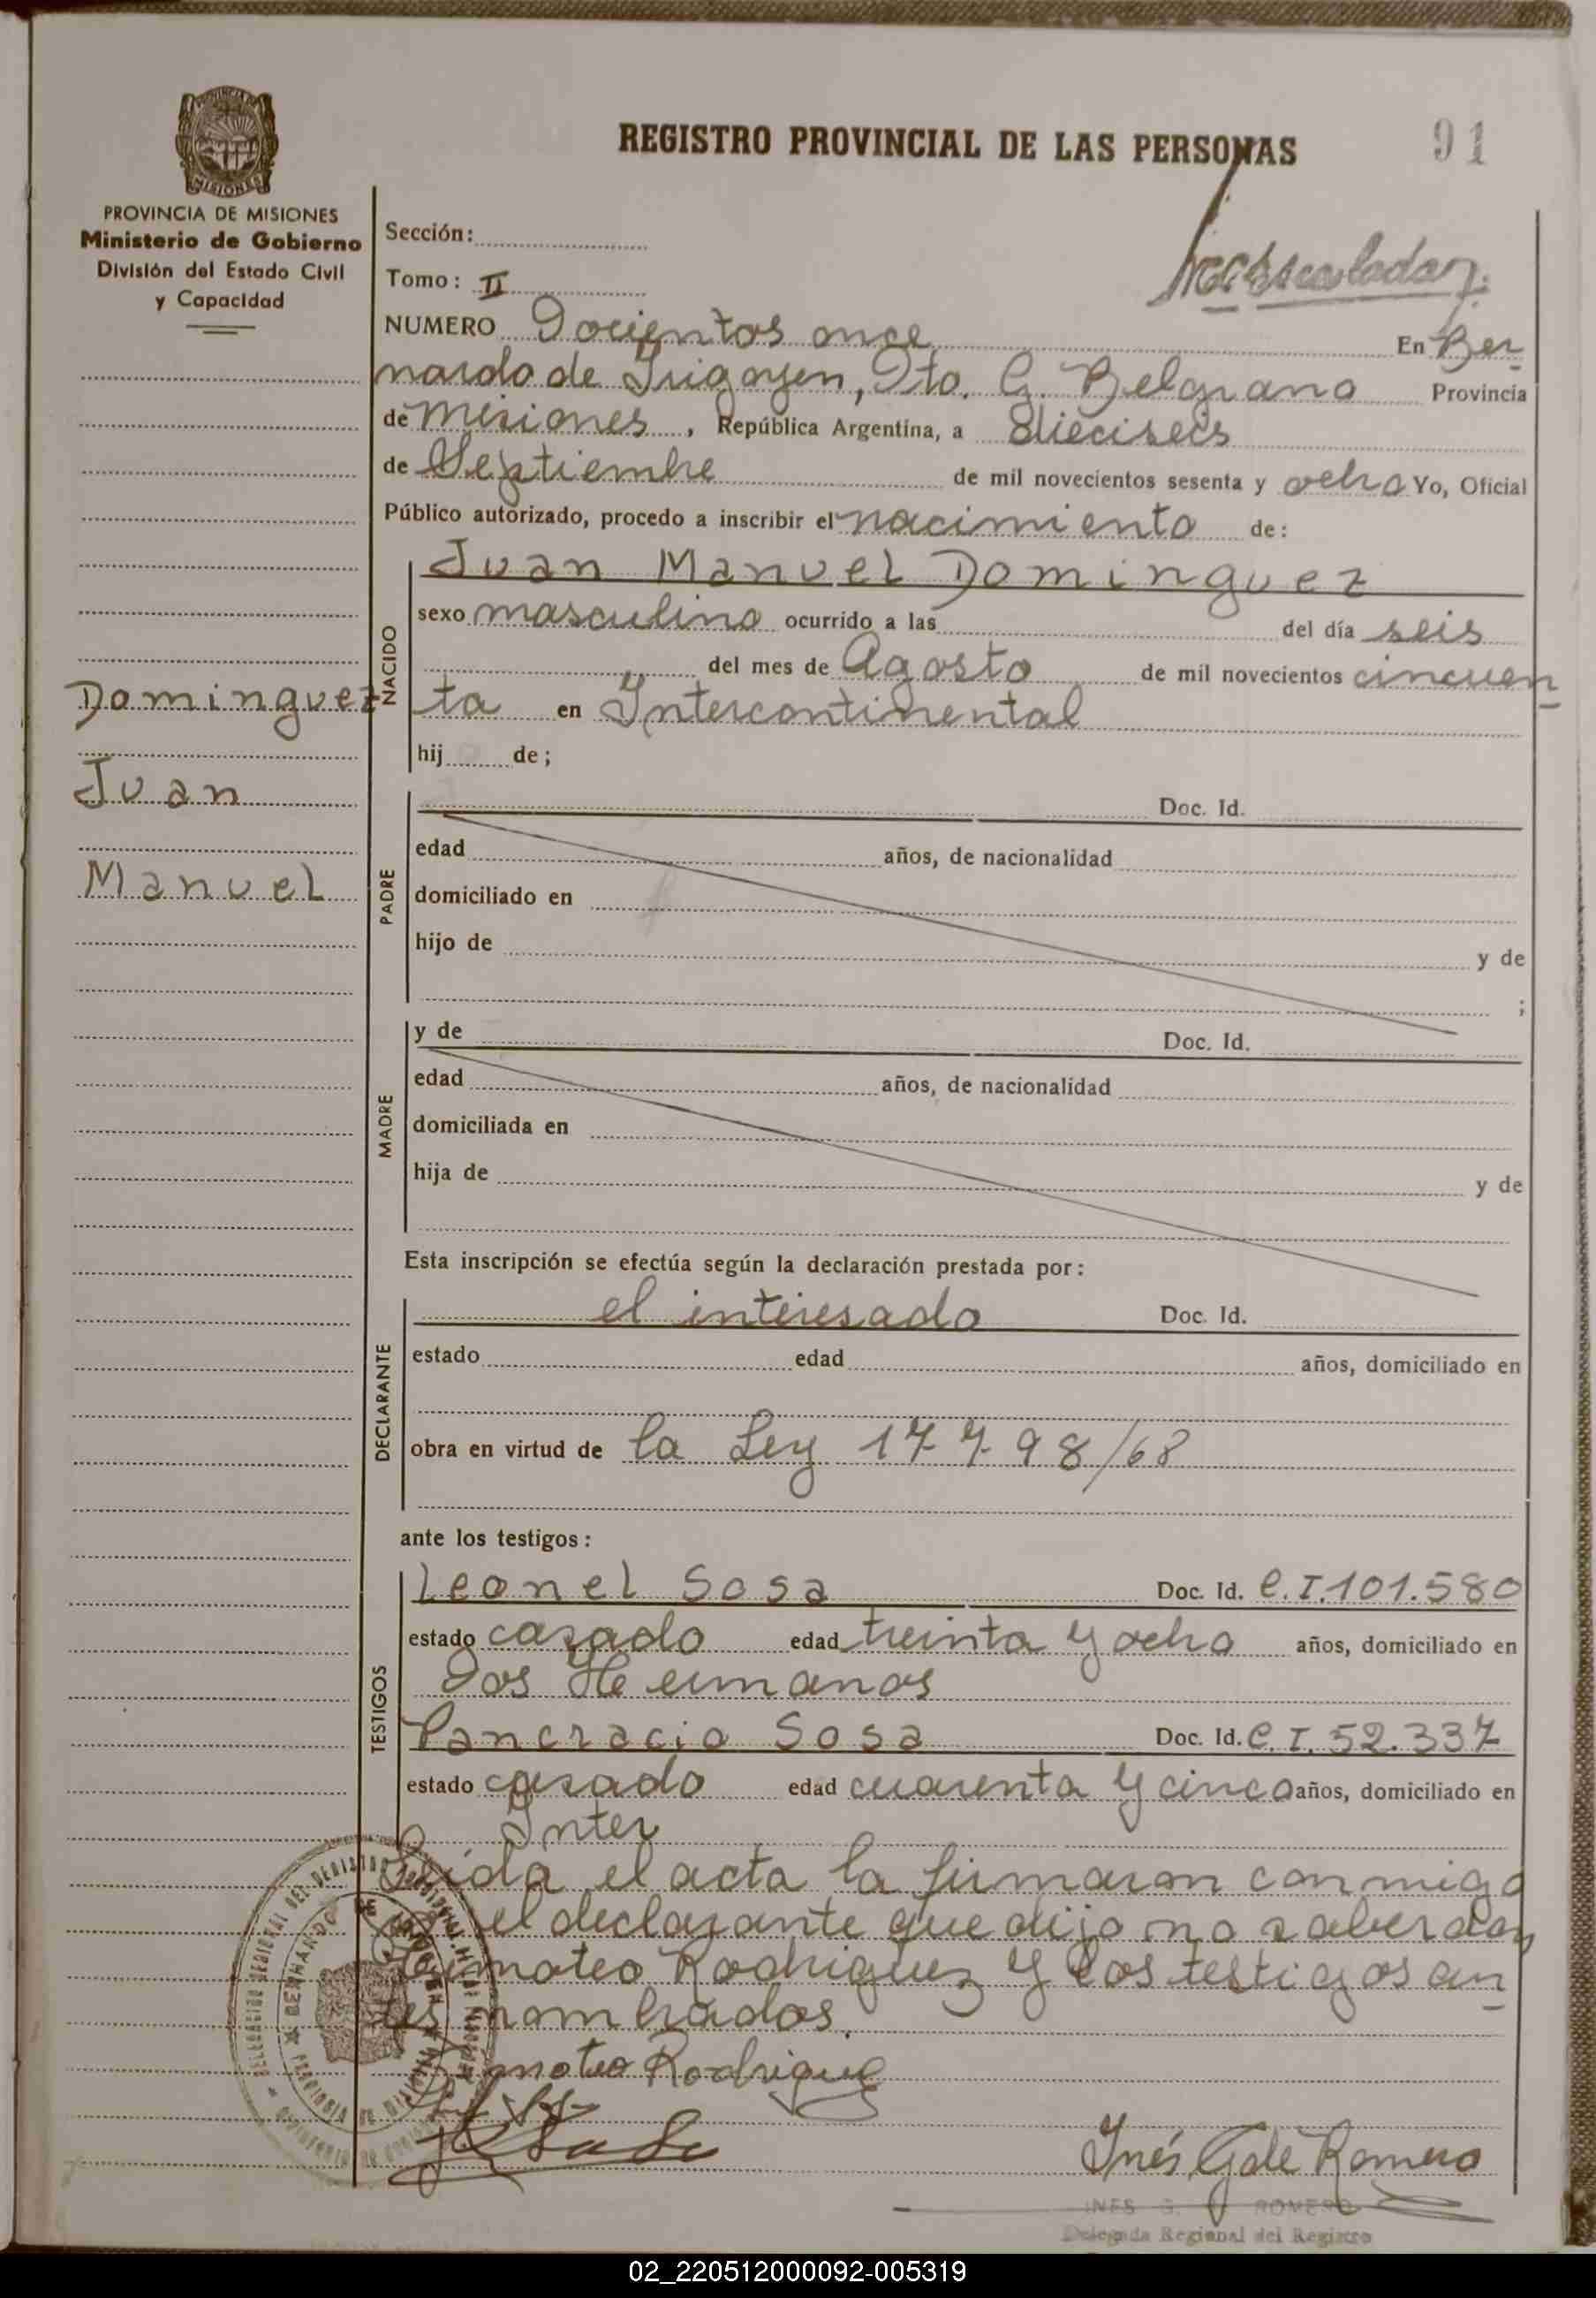 REGISTRO PROVINCIAL DE LAS PERSONAS
91
PROVINCIA DE MISIONES
Ministerio de Gobierno
División del Estado Civil
y Capacidad
Sección:
Tomo: II
NUMERO Docientos once En Ber
nardo de Irigoyen, Dto. G. Belgrano Provincia
de Misiones, República Argentina, a dieciseis
de Septiembre de mil novecientos sesenta y ocho Yo, Oficial
Público autorizado, procedo a inscribir el nacimiento de:
NACIDO
Juan Manuel Dominguez
sexo masculino ocurrido a las del día seis
del mes de Agosto de mil novecientos cincuen
Dominguez
ta en Intercontinental
hij de;
Juan
Manuel
PADRE
Doc. Id.
edad años, de nacionalidad
domiciliado en
hijo de y de
;
MADRE
y de Doc. Id.
edad años, de nacionalidad
domiciliada en
hija de y de
Esta inscripción se efectúa según la declaración prestada por:
DECLARANTE
el interesado Doc. Id.
estado edad años, domiciliado en
obra en virtud de la Ley 17798/68
ante los testigos:
TESTIGOS
Leonel Sosa Doc. Id. C.I.101.580
estado casado edad treinta y ocho años, domiciliado en
Dos Hermanos
Pancracio Sosa Doc. Id. C.I. 52.337
estado casado edad cuarenta y cinco años, domiciliado en
Inter
Leida el acta la firmaron conmigo
el declarante que dijo no saber
Timoteo Rodriguez y los testigos an
tes nombrados.
Timoteo Rodriguez
Inés G de Romero
INES G. ROMERO
Delegada Regional del Registro
02_220512000092-005319